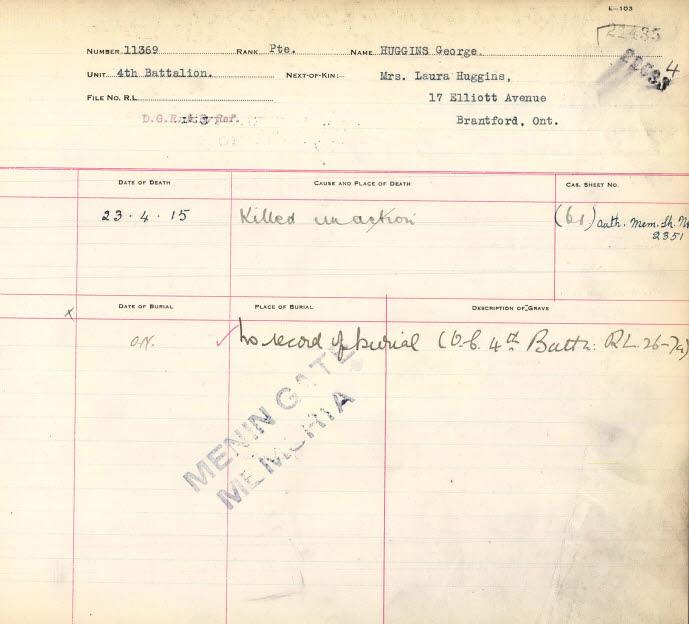 E—103
21435
NUMBER 11369 RANK Pte. NAME HUGGINS George.
4
UNIT 4th Battalion. NEXT-OF-KIN:— Mrs. Laura Huggins,
FILE NO. R.L. 17 Elliott Avenue
D.G.R. Ref. Brantford, Ont.
DATE OF DEATH CAUSE AND PLACE OF DEATH CAS. SHEET NO.
23 . 4 . 15 Killed in action auth. Mem. Sh. No
2351
x DATE OF BURIAL PLACE OF BURIAL DESCRIPTION OF GRAVE
No record of burial (O.C. 4th Battn: RL. 26-
MENIN GATE
MEMORIA